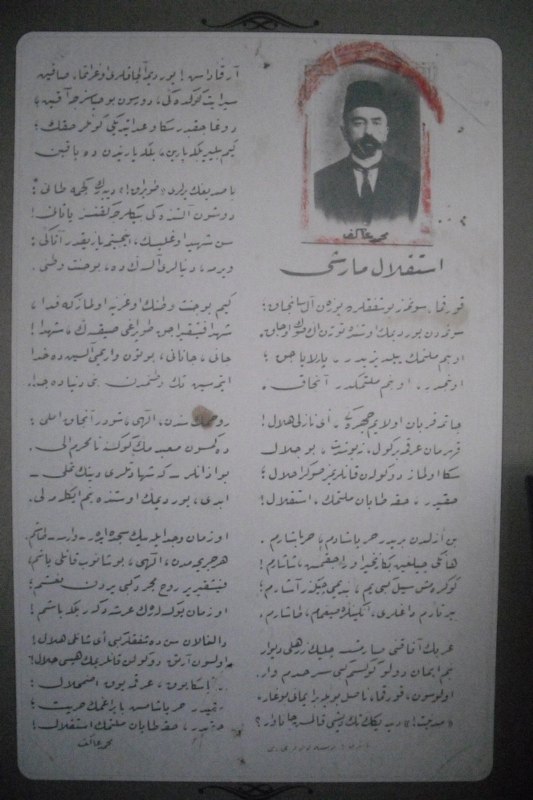 محمد عاكف
استقلال مارشى
قورقما، سونمز بو شفقلرده يوزن آل سانجاق؛
سونمه‌دن يورديمك اوستنده توتن اك صوك اوجاق.
او بنم ملتمك ييلديزيدر، پارلاياجق؛
او بنمدر، او بنم ملتمكدر آنجاق.
چاتمه قربان اولايم چهره‌كى، أى نازلى هلال!
قهرمان عرقمه بر كول، نه بو شدت، بو جلال
سكا اولماز دوكولن قانلريمز صوكرا حلال؛
حقيدر، حقه طاپان ملتمك، استقلال!
بن أزلدن بريدر حر ياشادم، حر ياشارم.
هانكى چيلغين بكا زنجير اوراجقمش، شاشارم!
كوكره‌مش سيل كبى يم، بنديمى چيكنر، آشارم؛
ييرتارم داغلرى، انكينلره صيغمام، طاشارم.
غربك آفاقنى صارمشسه چليك زرهلى ديوار
بنم ايمان دولو كوكسم كبى سرحدم وار.
اولوسون، قورقما، ناصل بويله بر ايمانى بوغار،
«مدنيت!» ديديكك تك ديشى قالمش جاناوار؟
آرقاداش! يورديمه آلچاقلرى اوغراتما صاقين
سپر ايت كوكده‌كى، دورسون بو حياسزجه آقين؛
دوغاجقدر سكا وعد ايتديكى كونلر حقك؛
كيم بيلير بلكه يارين، بلكه ياريندن ده ياقين
باصديغك يرلرى «طوپراق!» ديه‌رك كچمه طانى؛
دوشون آلتنده كى بيكلرجه كفنسز ياتانى!
سن شهيد اوغليسك، اينجيتمه يازيقدر آتاكى؛
ويرمه، دنيالرى آلسه‌ك ده، بو جنت وطنى.
كيم بو جنت وطنك اوغرينه اولماز كه فدا،
شهدا فيشقيراجق طوپراغى صيقسه‌ك، شهدا!
جانى، جانانى، بوتون واريمى آلسين ده خدا
ايتمسين تك وطنمدن بنى دنياده جدا.
روحمك سندن، الهى، شودر آنجاق املى؛
دكمسون معبدمك كوكسنه نامحرم الى.
بو اذانلر ـ كه شهادتلرى دينك تملى ـ
ابدى، يورديمك اوستنده بنم ايكله‌ملى.
او زمان وجد ايله بيك سجده ايدر ـ وارسه ـ طاشم
هر جريحه‌مدن، الهى، بوشانوب قانلى ياشم،
فيشقيرير روح مجرد كبى يردن نعشم؛
او زمان يوكسله‌رك عرشه دكر بلكه باشم!
دالغالان سن ده شفقلر كبى أى شانلى هلال!
اولسون آرتق دوكولن قانلريمك هپسى حلال!
ابديا سكا يوق، عرقمه يوق اضمحلال؛
حقيدر، حر ياشامش بايراغمك حريت؛
حقيدر، حقه طاپان ملتمك استقلال!
محمد عاكف